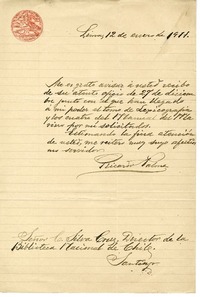 Lima, 12 de enero de 1911.
Me es grato avisar á usted recibo
de su atento oficio de 27 de diciem
bre junto con el que han llegado
á mi poder el tomo de Lexicografía
y los cuatro del
por mi solicitados.
Estimando la fina atención
de usted, me
su servidor
Ricardo Palma
Señor C. Silva Cruz, Director de la
Biblioteca Nacional de Chile.
Santiago